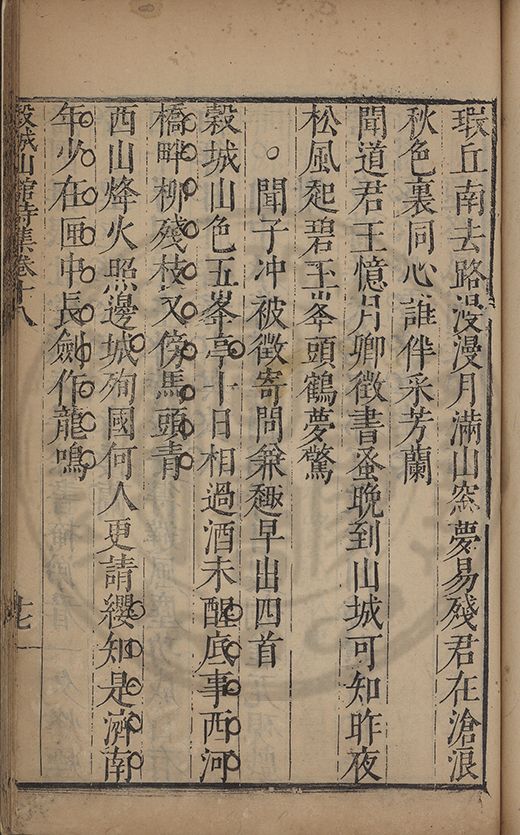 瑕丘南去路漫漫月滿山窓夢易殘君在滄浪
秋色裏同心誰伴采芳蘭
聞道君王憶月卿徵書蚤晚到山城可知昨夜
松風起碧玉峯頭鶴夢驚
○聞子冲被徵寄問兼趣早出四首
穀城山色五峯亭十日相過酒未醒底事西河
橋畔柳殘枝又傍馬頭青
西山烽火照邊城殉國何人更請纓知是濟南
年少在匣中長劍作龍鳴
穀城山館詩集卷十八
十七